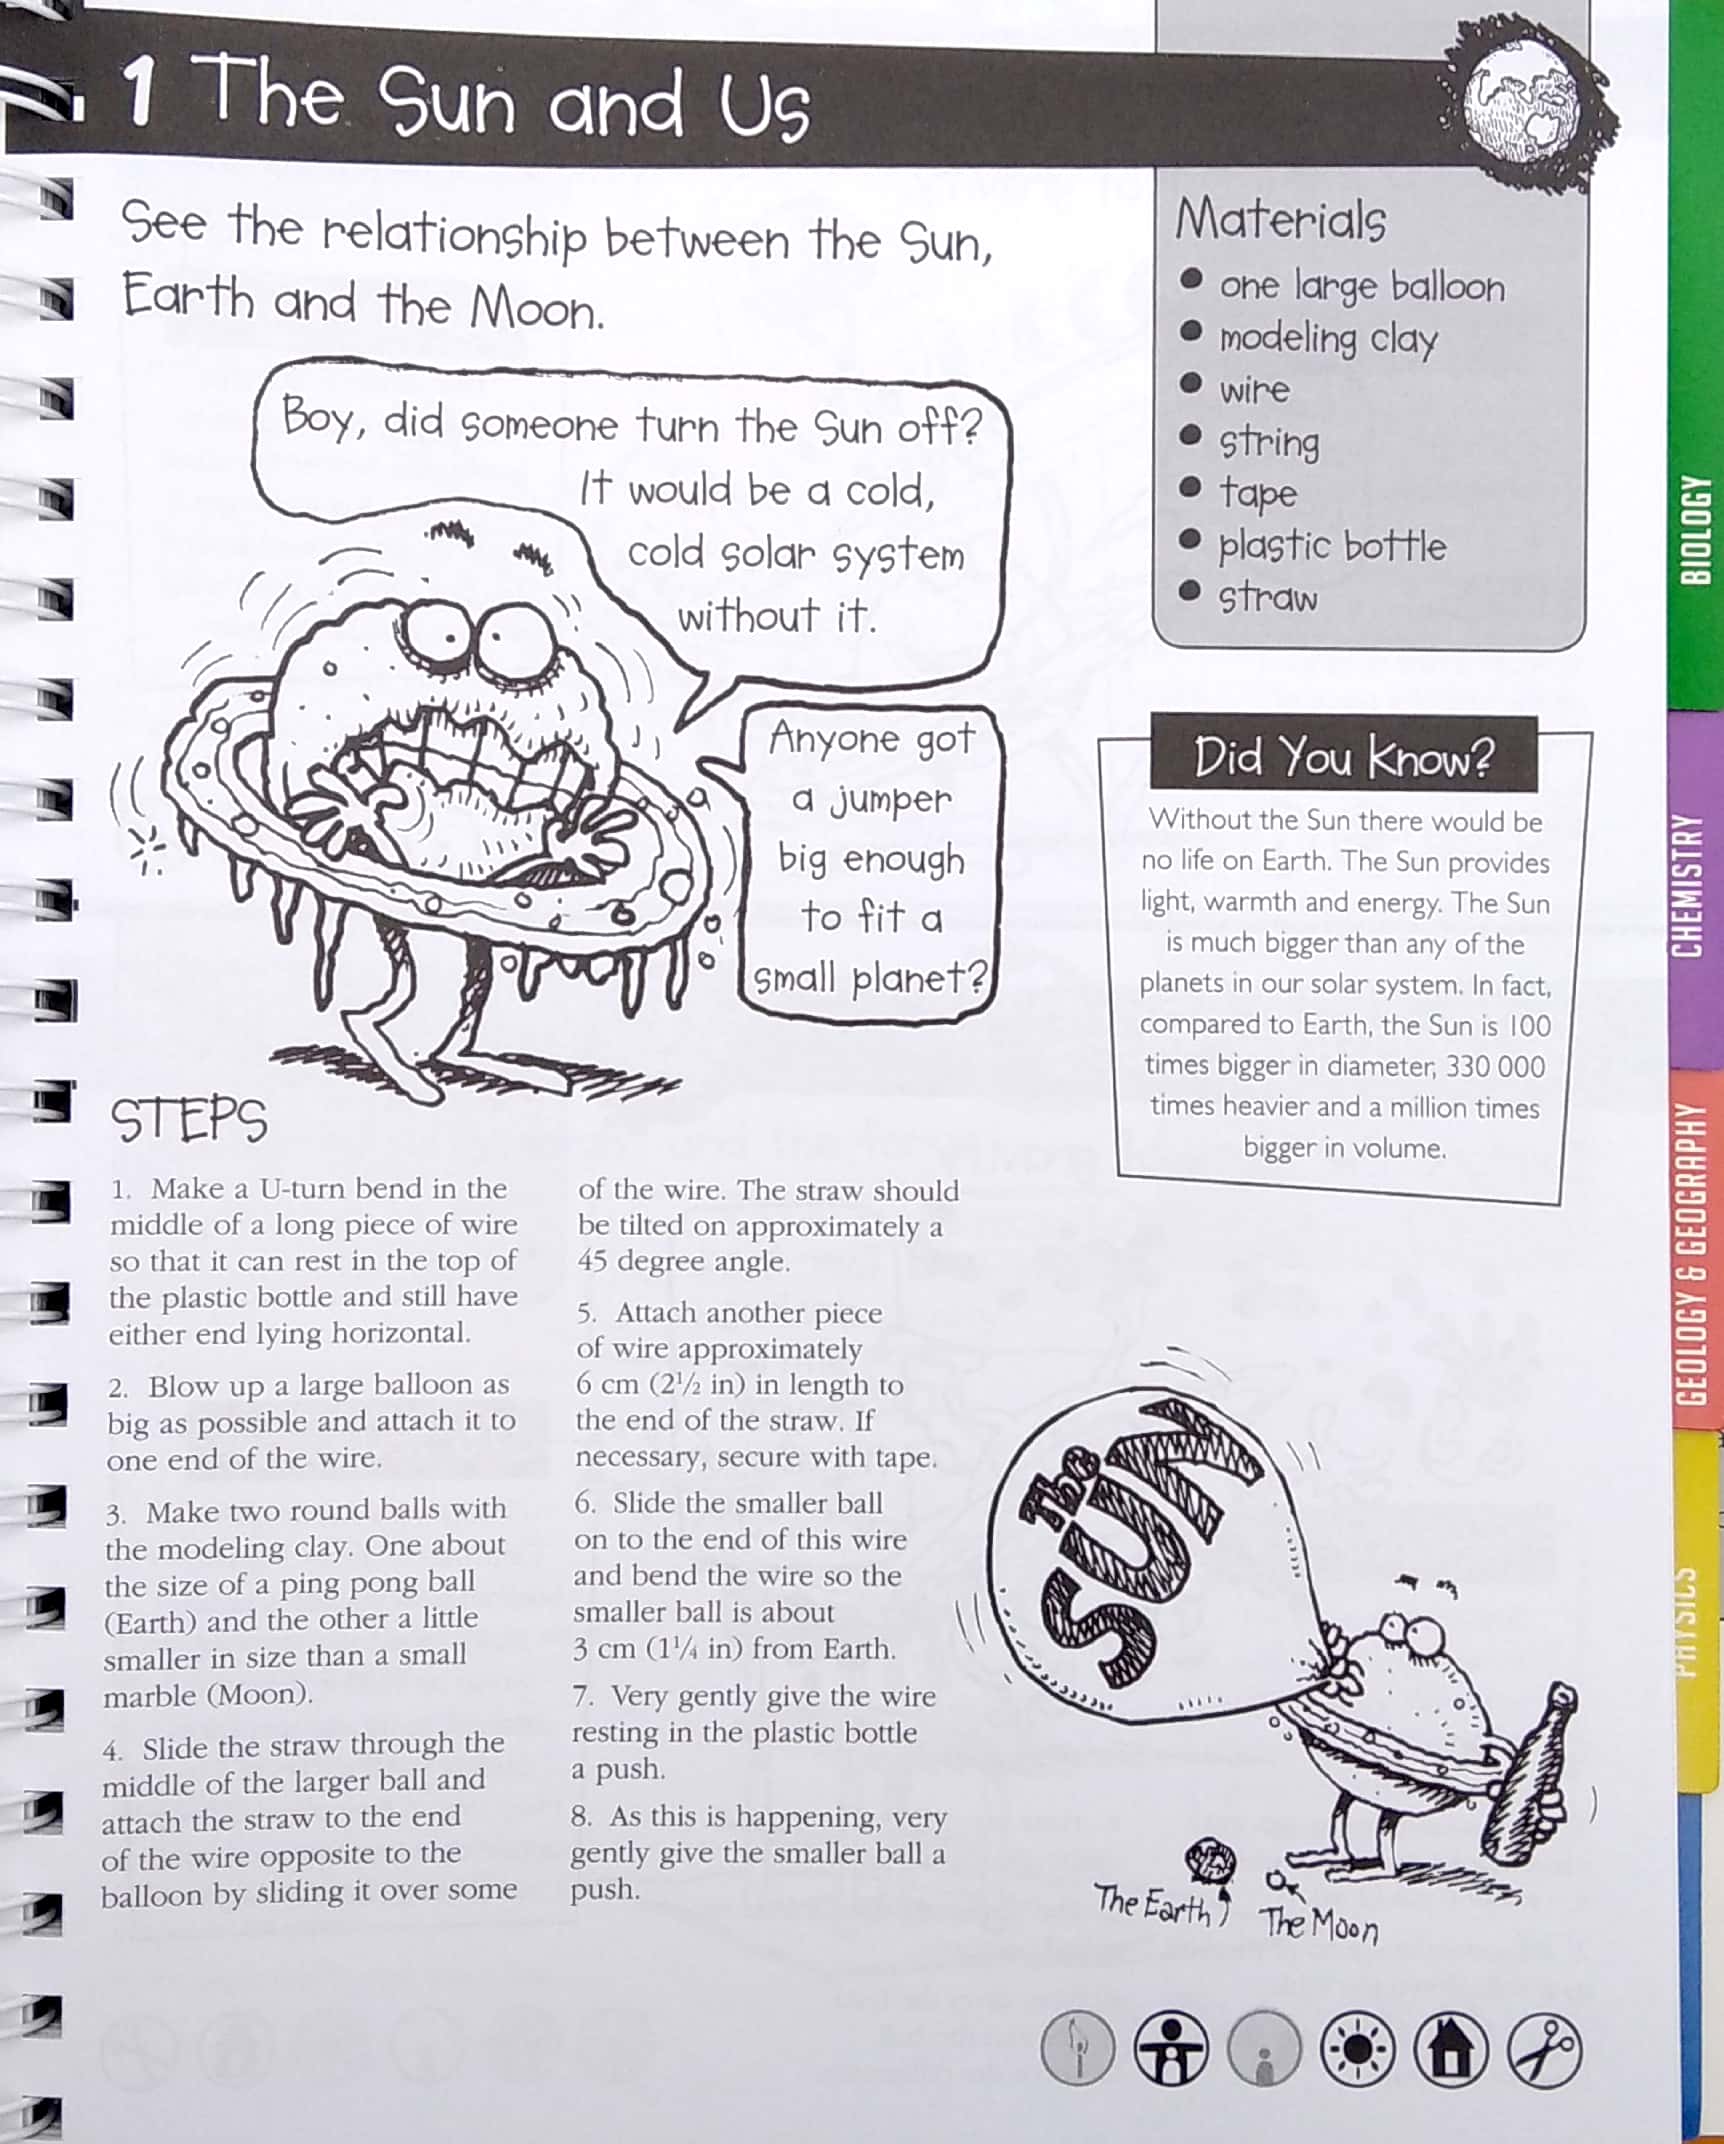 1 The Sun and Us
See the relationship between the Sun,
Earth and the Moon.
Boy, did someone turn the Sun off?
It would be a cold,
cold solar system
without it.
Anyone got
a jumper
big enough
to fit a
small planet?
Materials
• one large balloon
• modeling clay
• wire
• string
• tape
• plastic bottle
• straw
Did You Know?
Without the Sun there would be
no life on Earth. The Sun provides
light, warmth and energy. The Sun
is much bigger than any of the
planets in our solar system. In fact,
compared to Earth, the Sun is 100
times bigger in diameter, 330 000
times heavier and a million times
bigger in volume.
STEPS
1. Make a U-turn bend in the
middle of a long piece of wire
so that it can rest in the top of
the plastic bottle and still have
either end lying horizontal.
2. Blow up a large balloon as
big as possible and attach it to
one end of the wire.
3. Make two round balls with
the modeling clay. One about
the size of a ping pong ball
(Earth) and the other a little
smaller in size than a small
marble (Moon).
4. Slide the straw through the
middle of the larger ball and
attach the straw to the end
of the wire opposite to the
balloon by sliding it over some
of the wire. The straw should
be tilted on approximately a
45 degree angle.
5. Attach another piece
of wire approximately
6 cm (2½ in) in length to
the end of the straw. If
necessary, secure with tape.
6. Slide the smaller ball
on to the end of this wire
and bend the wire so the
smaller ball is about
3 cm (1¼ in) from Earth.
7. Very gently give the wire
resting in the plastic bottle
a push.
8. As this is happening, very
gently give the smaller ball a
push.
The
SUN
The Earth
The Moon
BIOLOGY
CHEMISTRY
GEOLOGY & GEOGRAPHY
PHYSICS